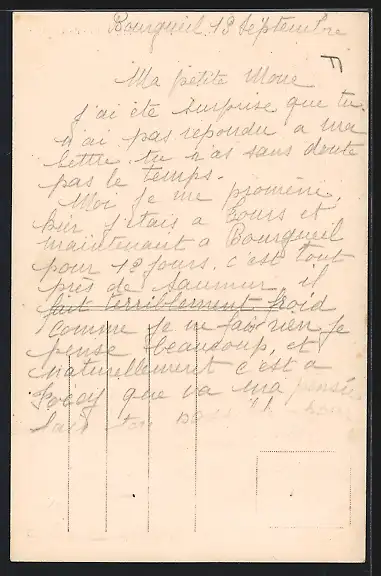 Bourgueil 13 Septembre
Ma petite Mone
j'ai été surprise que tu
n'ai pas répondu a ma
lettre, tu n'as sans doute
pas le temps.
Moi je me promène,
hier j'étais a Tours et
maintenant a Bourgueil
pour 12 jours, c'est tout
près de Saumur, il
fait terriblement froid
comme je ne fais rien je
pense beaucoup, et
naturellement c'est a
que va ma pensée